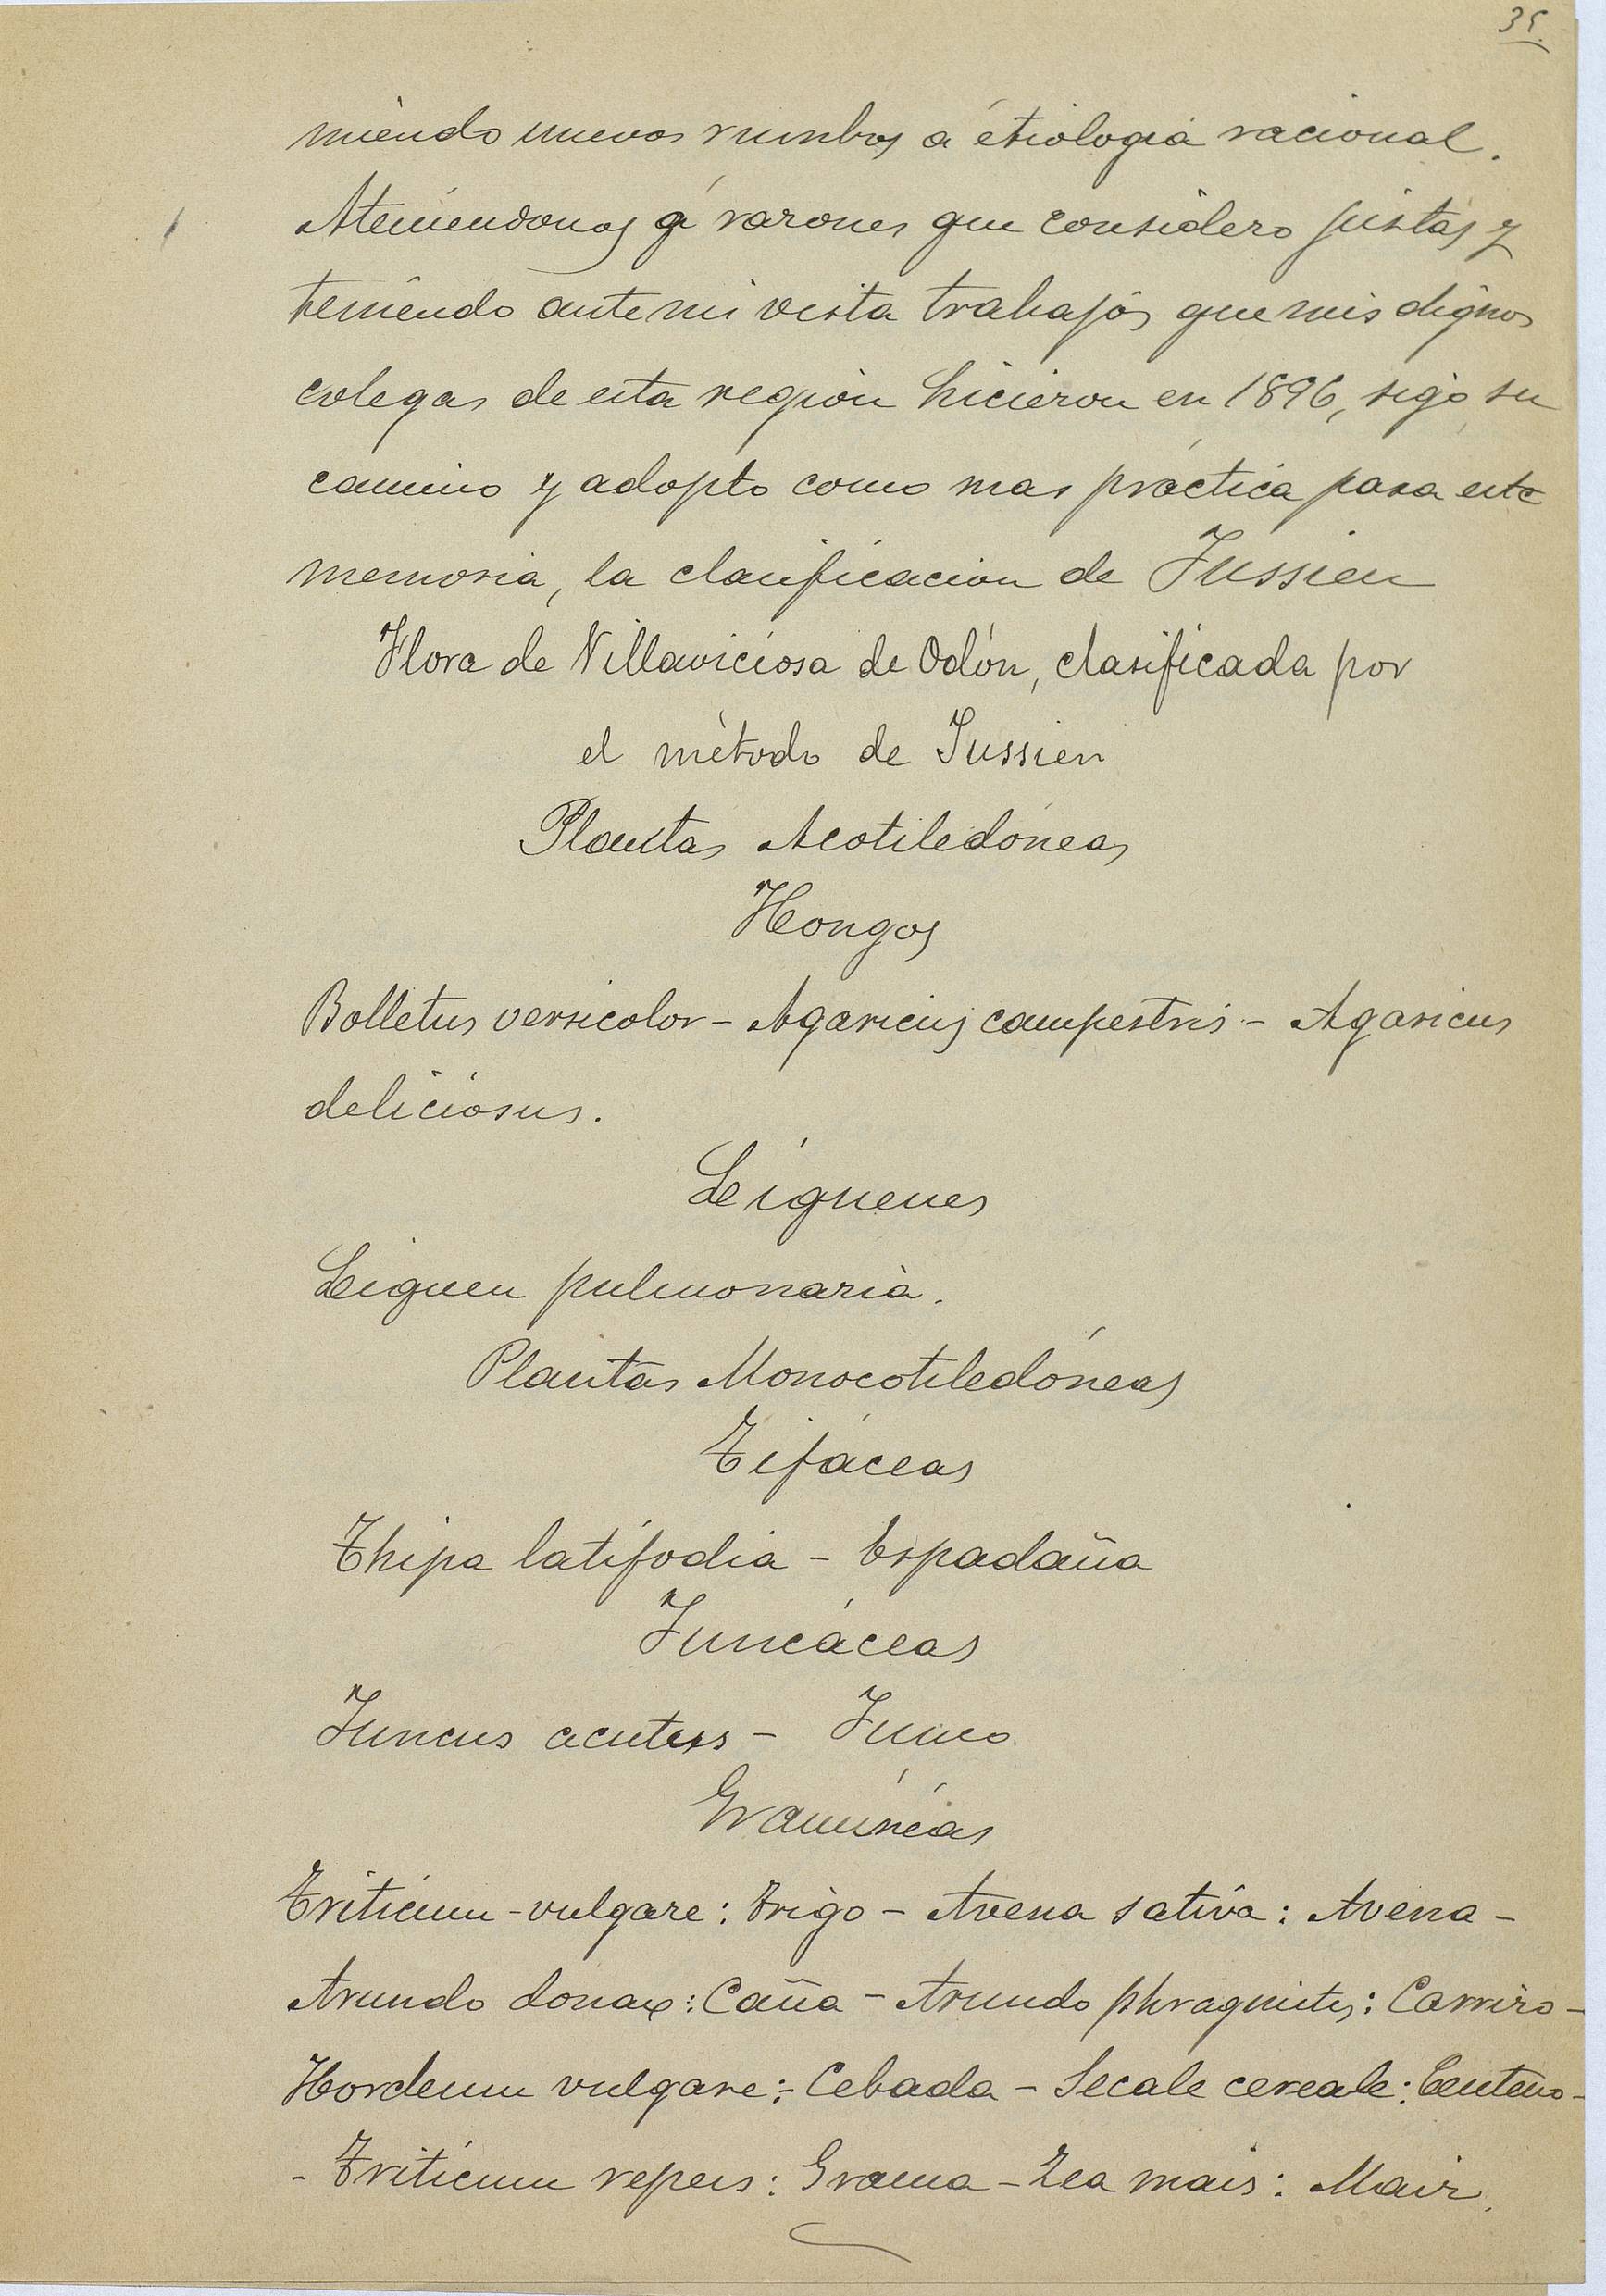 35.
niendo nuevos rumbos a etiologia racional.
Ateniendonos á razones que considero justas y
teniendo ante mi vista trabajos que mis dignos
colegas de esta región hicieron en 1896, sigo su
camino y adopto como mas práctica para esta
memoria, la clasificacion de Jussieu
Flora de Villaviciosa de Odón, clasificada por
el método de Jussieu
Plantas Acotiledóneas
Hongos
Bolletus versicolor - Agaricus campestris - Agaricus
deliciosus.
Líquenes
Liquen pulmonaria.
Plantas Monocotiledóneas
Tifáceas
Thipa latifodia - Espadaña
Juncáceas
Juncus acutus - Junco.
Gramíneas
Triticum - vulgare: Trigo - Avena sativa: Avena -
Arundo donax: Caña - Arundo phragmites: Carrizo -
Hordeum vulgare: - Cebada - Secale cereale: Centeno -
- Triticum repens: Grama - Zea mais: Maiz.